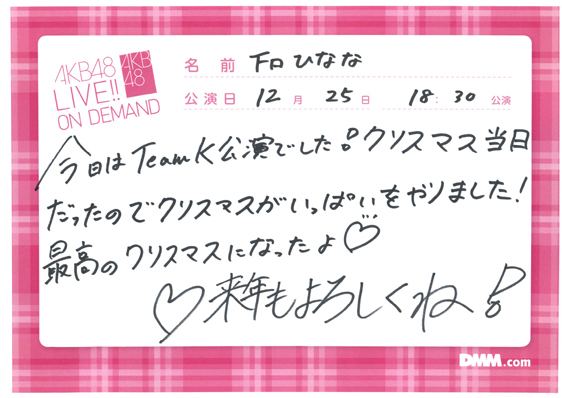 AKB48
LIVE!!
ON DEMAND
AKB
48
名前 下口ひなな
公演日 12月25日 18:30公演
今日はTeamK公演でした!クリスマス当日
だったのでクリスマスがいっぱいをやりました!
最高のクリスマスになったよ♡
♡来年もよろしくね!
DMM.com